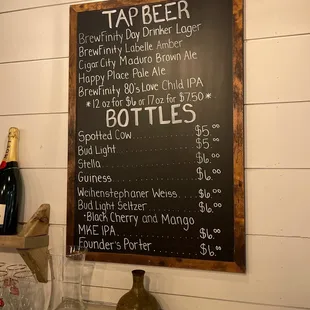 TAP BEER
BREWFINITY DAY DRINKER LAGER
BREWFINITY LABELLE AMBER
CIGAR CITY MADURO BROWN ALE
HAPPY PLACE PALE ALE
BREWFINITY 80'S LOVE CHILD IPA
*12 OZ FOR $6 OR 17 OZ FOR $7.50*
BOTTLES
SPOTTED COW $5.00
BUD LIGHT $5.00
STELLA $6.00
GUINESS $6.00
WEIHENSTEPHANER WEISS $6.00
BUD LIGHT SELTZER $6.00
•BLACK CHERRY AND MANGO
MKE IPA $6.00
FOUNDER'S PORTER $6.00